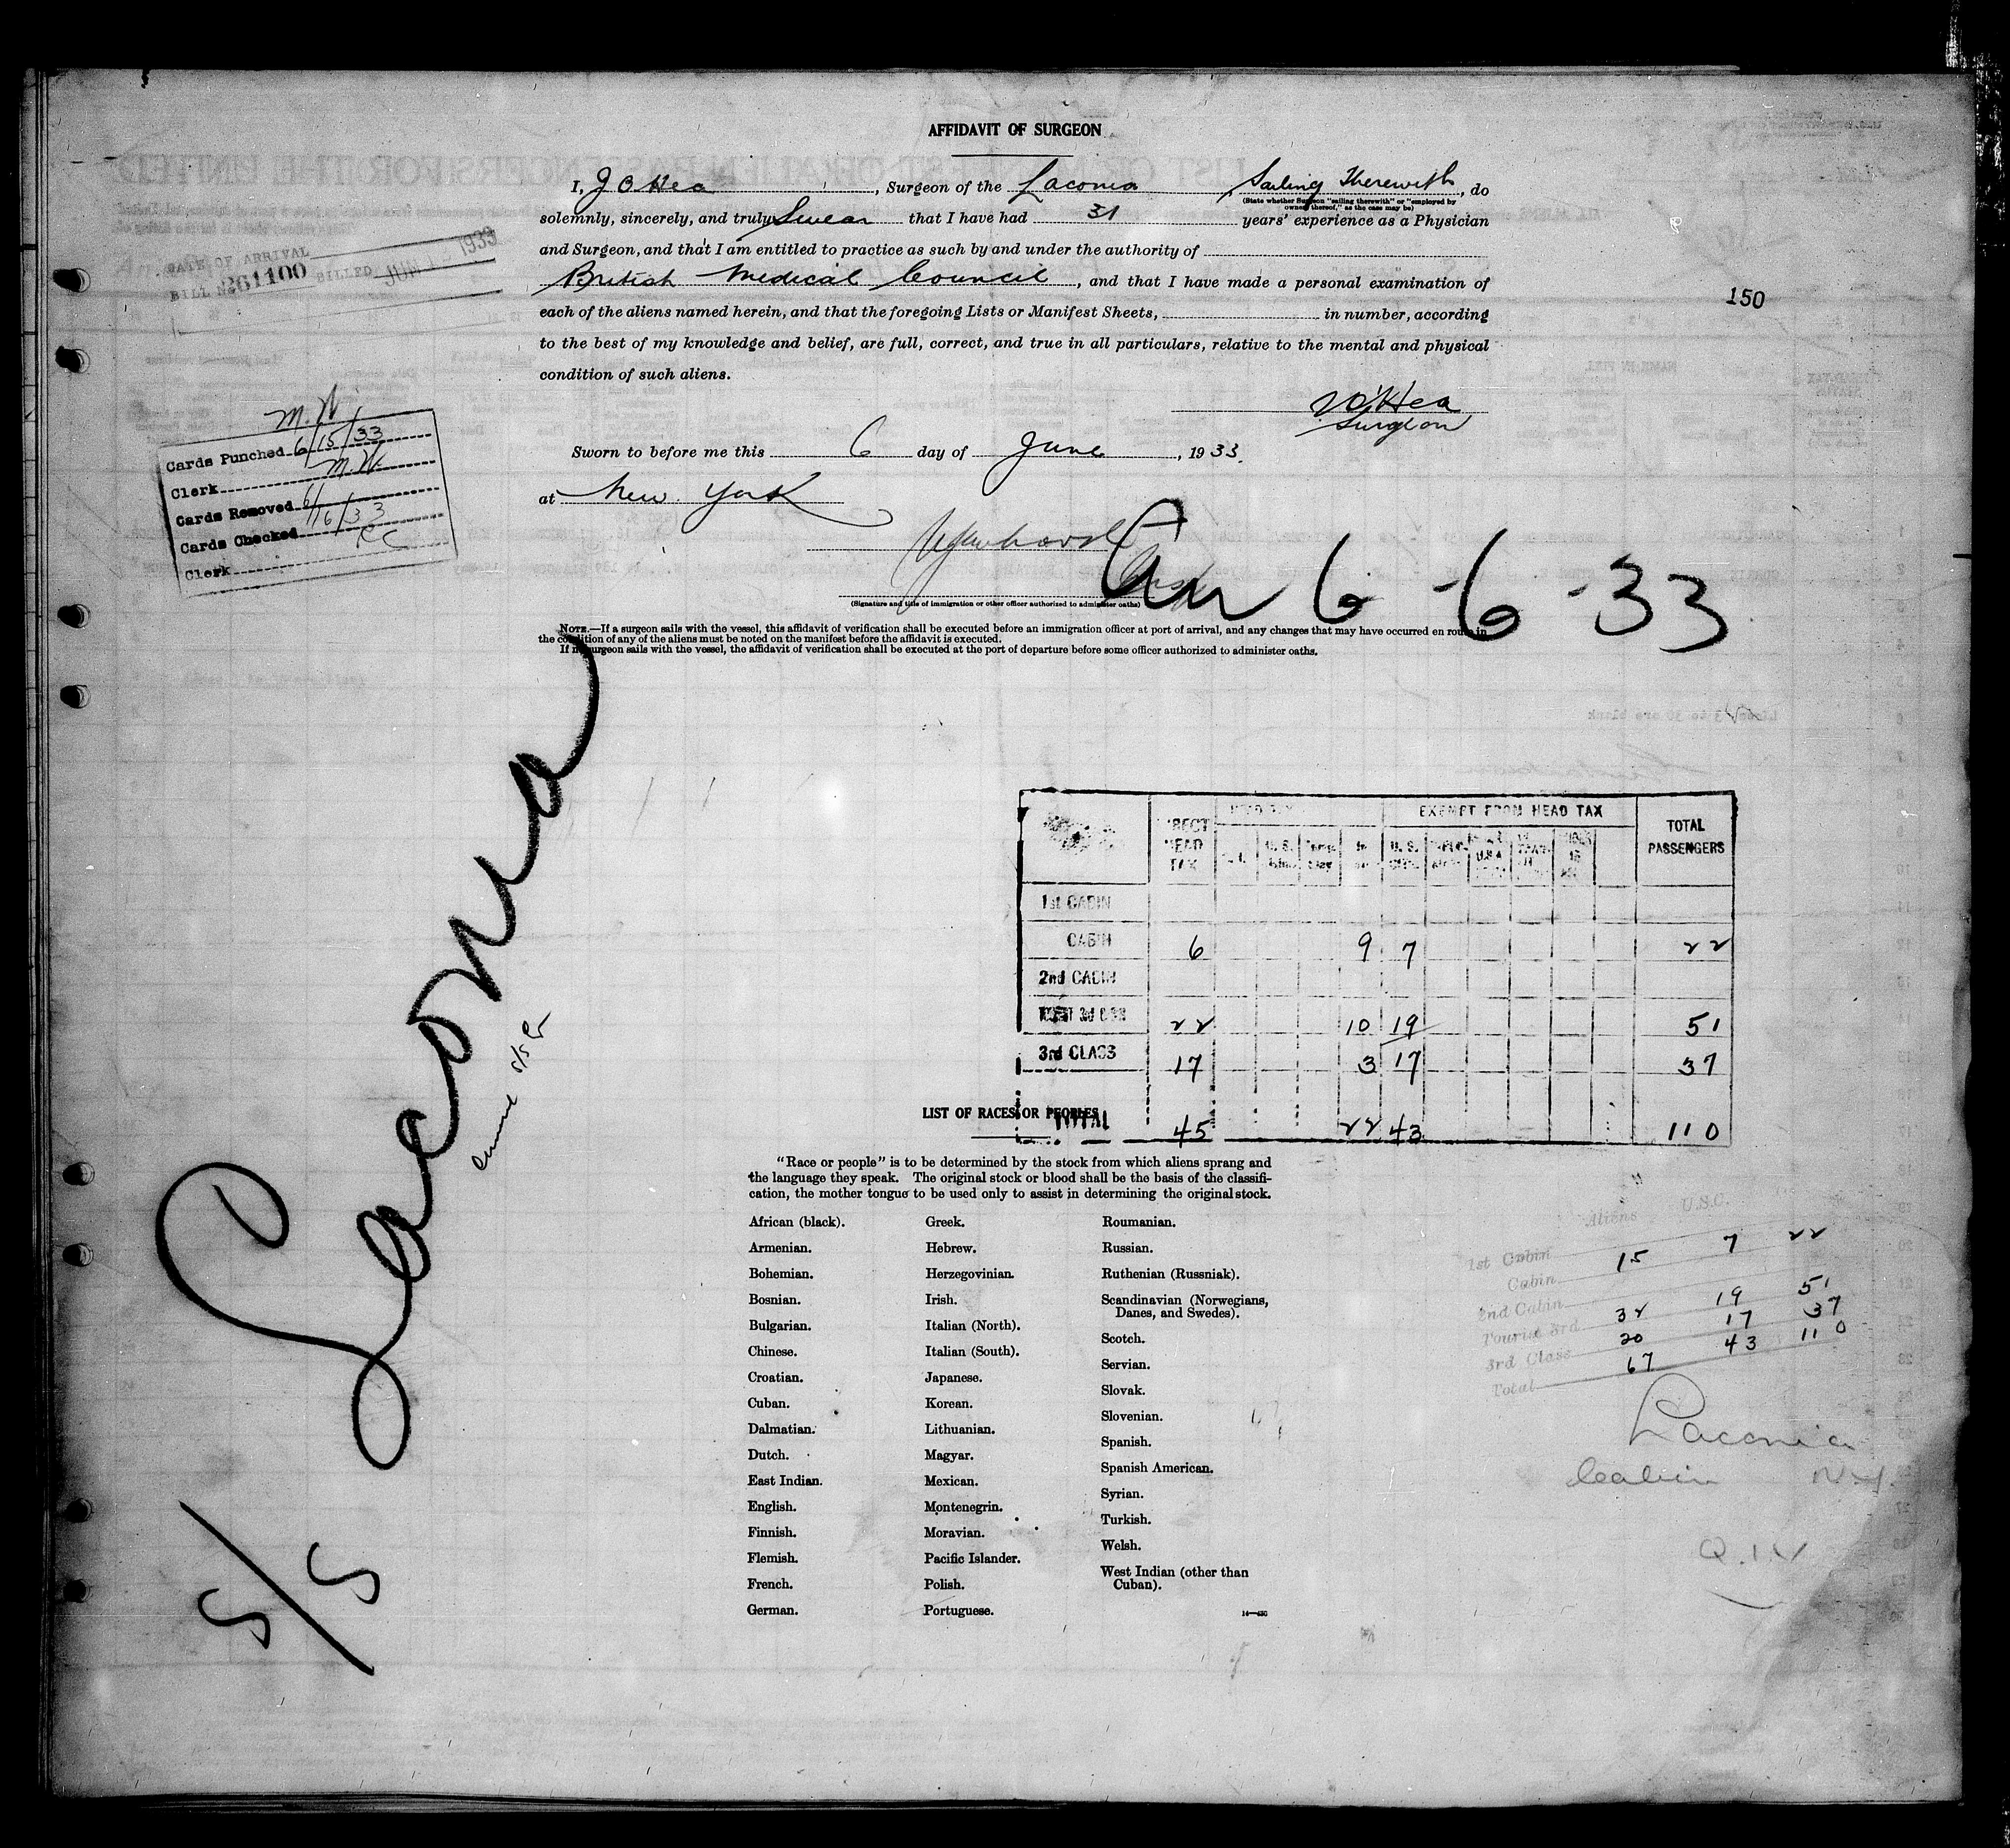 AFFIDAVIT OF SURGEON
I, J O'Hea, Surgeon of the Laconia Sailing Therewith, do
(State whether Surgeon "sailing therewith" or "employed by
owners thereof," as the case may be)
solemnly, sincerely, and truly Swear that I have had 31 years' experience as a Physician
and Surgeon, and that I am entitled to practice as such by and under the authority of
British Medical Council, and that I have made a personal examination of
each of the aliens named herein, and that the foregoing Lists or Manifest Sheets, in number, according
to the best of my knowledge and belief, are full, correct, and true in all particulars, relative to the mental and physical
condition of such aliens.
O'Hea
Surgeon
Sworn to before me this 6 day of June, 1933.
at New York
(Signature and title of immigration or other officer authorized to administer oaths)
Arr 6-6-33
NOTE.—If a surgeon sails with the vessel, this affidavit of verification shall be executed before an immigration officer at port of arrival, and any changes that may have occurred en route in
the condition of any of the aliens must be noted on the manifest before the affidavit is executed.
If no surgeon sails with the vessel, the affidavit of verification shall be executed at the port of departure before some officer authorized to administer oaths.
DATE OF ARRIVAL
BILL No. 261100 BILLED JUN 1933
150
M.W.
Cards Punched 6/15/33
Clerk M.W.
Cards Removed 6/
Cards Checked 6/16/33
Clerk RC
S/S Laconia
DIRECT HEAD TAX
HEAD TAX
EXEMPT FROM HEAD TAX
TOTAL PASSENGERS
1st CABIN
CABIN 6 9 7 22
2nd CABIN
TOURIST 3rd CLASS 22 10 19 51
3rd CLASS 17 3 17 37
TOTAL 45 22 43 110
LIST OF RACES OR PEOPLES
"Race or people" is to be determined by the stock from which aliens sprang and
the language they speak. The original stock or blood shall be the basis of the classifi-
cation, the mother tongue to be used only to assist in determining the original stock.
African (black).
Armenian.
Bohemian.
Bosnian.
Bulgarian.
Chinese.
Croatian.
Cuban.
Dalmatian.
Dutch.
East Indian.
English.
Finnish.
Flemish.
French.
German.
Greek.
Hebrew.
Herzegovinian.
Irish.
Italian (North).
Italian (South).
Japanese.
Korean.
Lithuanian.
Magyar.
Mexican.
Montenegrin.
Moravian.
Pacific Islander.
Polish.
Portuguese.
Roumanian.
Russian.
Ruthenian (Russniak).
Scandinavian (Norwegians,
Danes, and Swedes).
Scotch.
Servian.
Slovak.
Slovenian.
Spanish.
Spanish American.
Syrian.
Turkish.
Welsh.
West Indian (other than
Cuban).
Aliens U.S.C.
1st Cabin
Cabin 15 7 22
2nd Cabin
Tourist 3rd 32 19 51
3rd Class 20 17 37
Total 67 43 110
Laconia
Cabin N.Y.